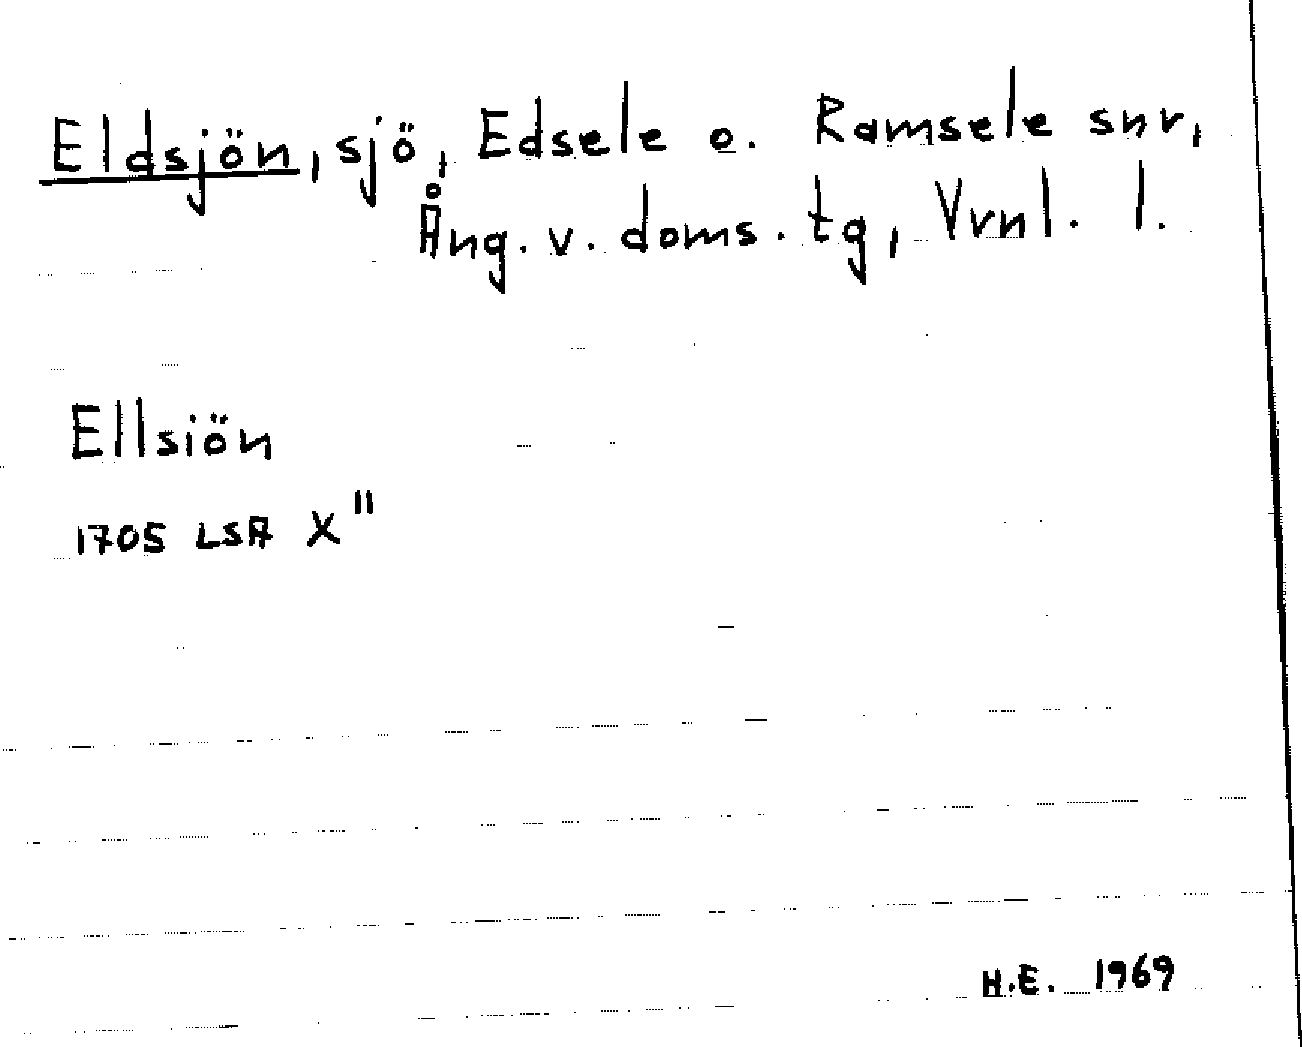 Eldsjön, sjö, Edsele o. Ramsele snr,
Ång. v. doms. tg, Vrnl. l.
Ellsiön
1705 LSA X"
H.E. 1969